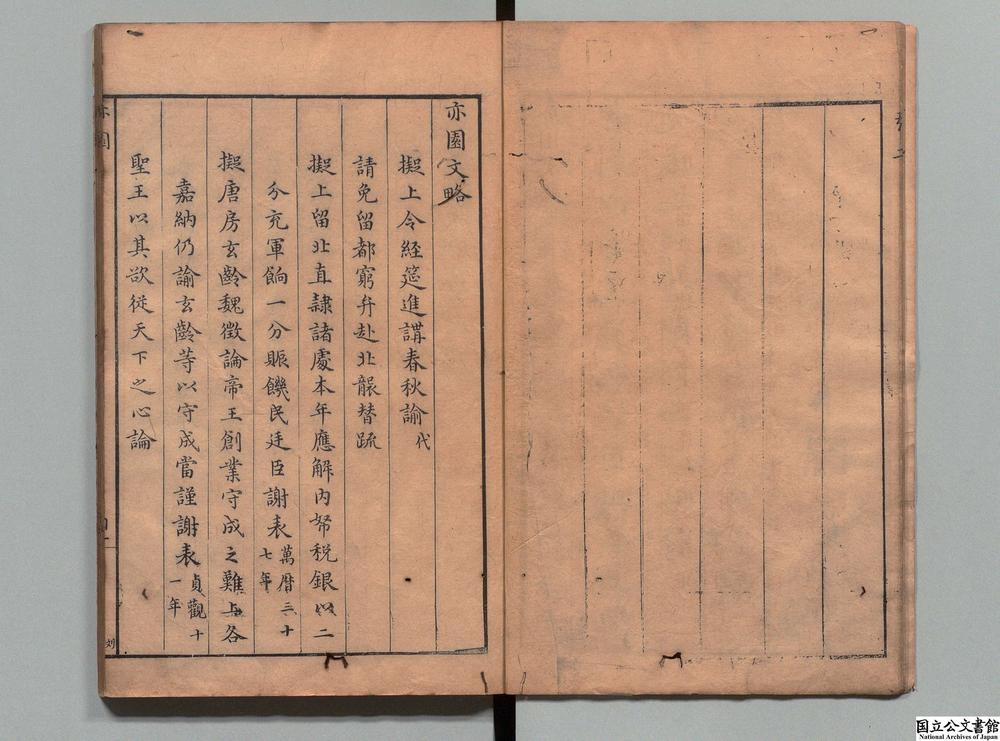 亦園文略
擬上令經筵進講春秋諭代
請免留都窮弁赴北襲替疏
擬上留北直隸諸處本年應解內帑稅銀以二
分充軍餉一分賑饑民廷臣謝表萬曆三十七年
擬唐房玄齡魏徵論帝王創業守成之難上各
嘉納仍諭玄齡等以守成當謹謝表貞觀十一年
聖王以其欲從天下之心論
亦園
国立公文書館
National Archives of Japan